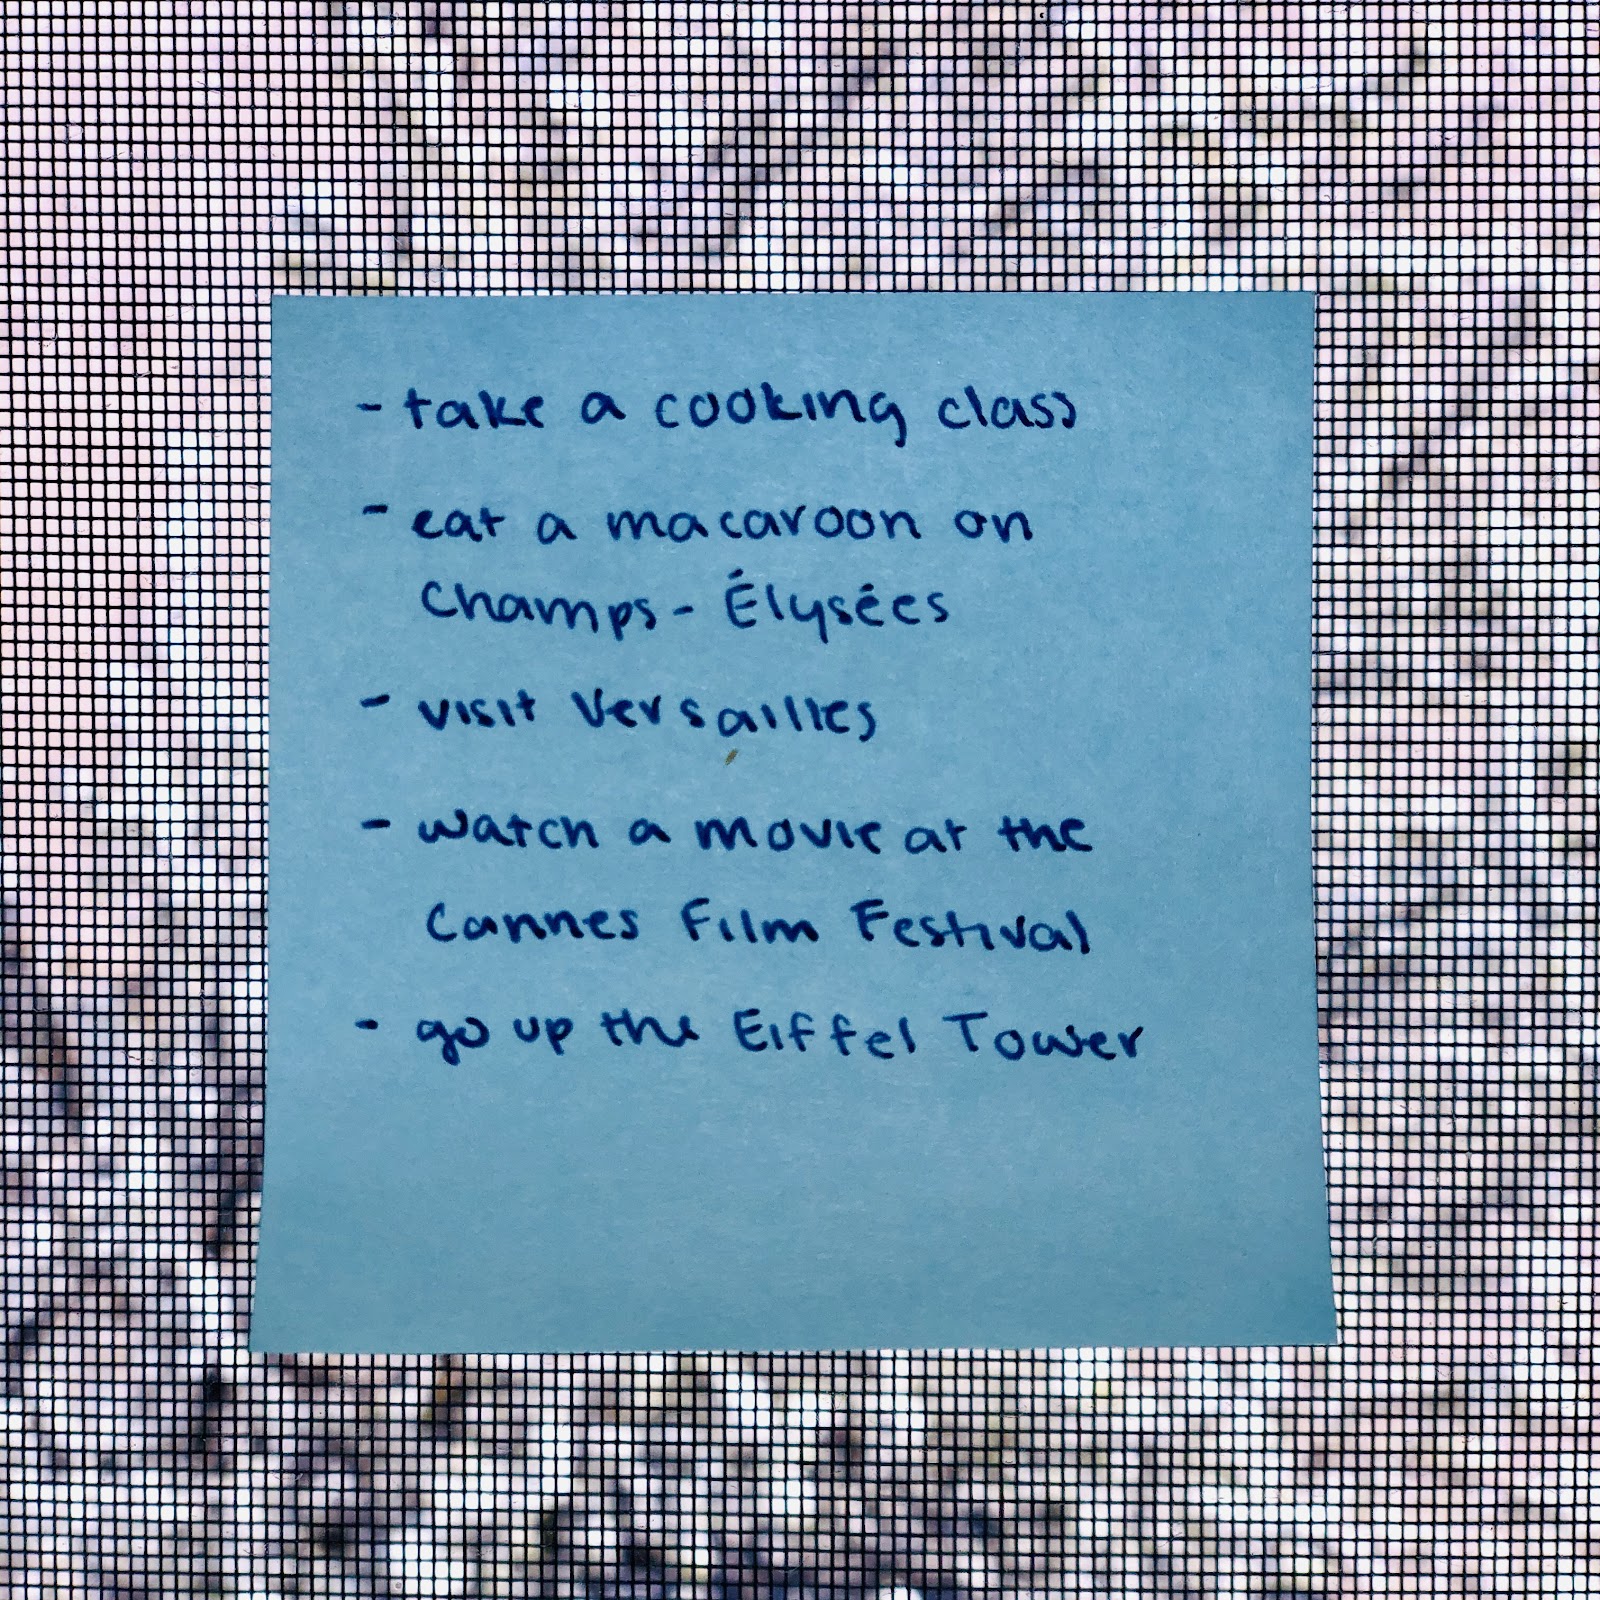 - take a cooking class
- eat a macaroon on
Champs-Élysées
- visit Versailles
- watch a movie at the
Cannes Film Festival
- go up the Eiffel Tower